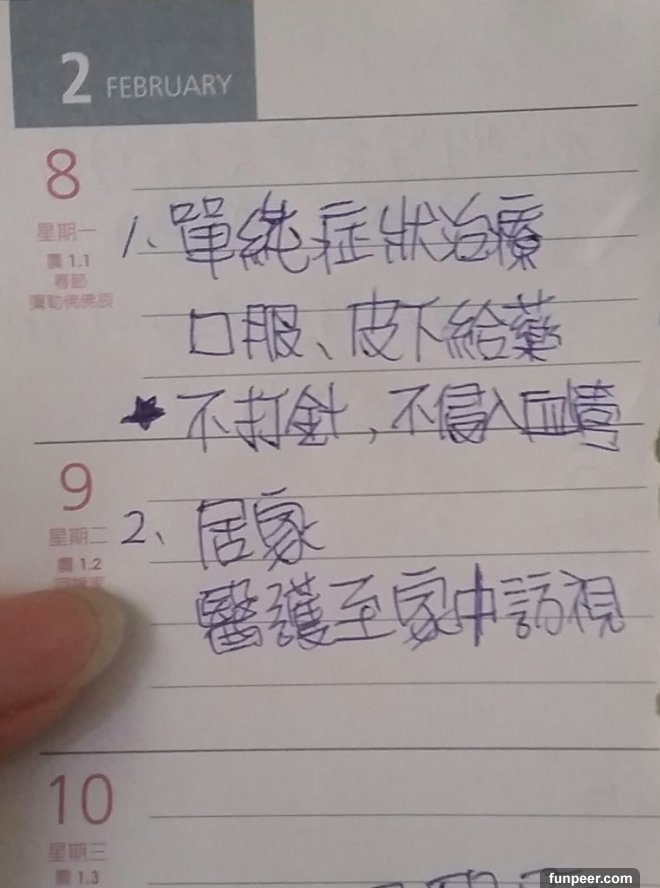 2 FEBRUARY
8
星期一
農 1.1
春節
彌勒佛佛辰
1、單純症狀治療
口服、皮下給藥
★不打針，不侵入血管
9
星期二
農 1.2
2、居家
醫護至家中訪視
10
星期三
農 1.3
funpeer.com